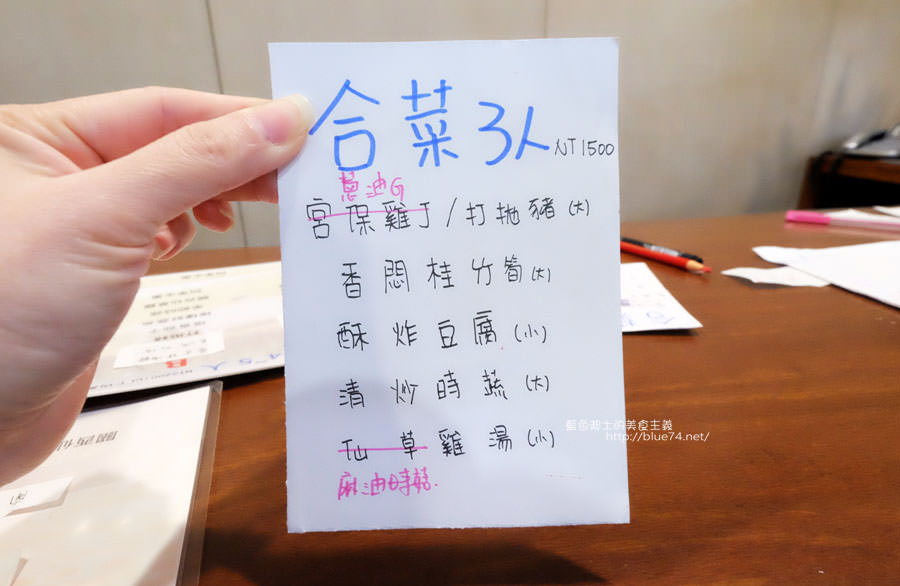 合菜 3人 NT1500
蔥油G
宮保雞丁/打拋豬(大)
香悶桂竹筍(大)
酥炸豆腐(小)
清炒時蔬(大)
仙草雞湯(小)
麻油時蔬.
藍色起士的美食主義
http://blue74.net/